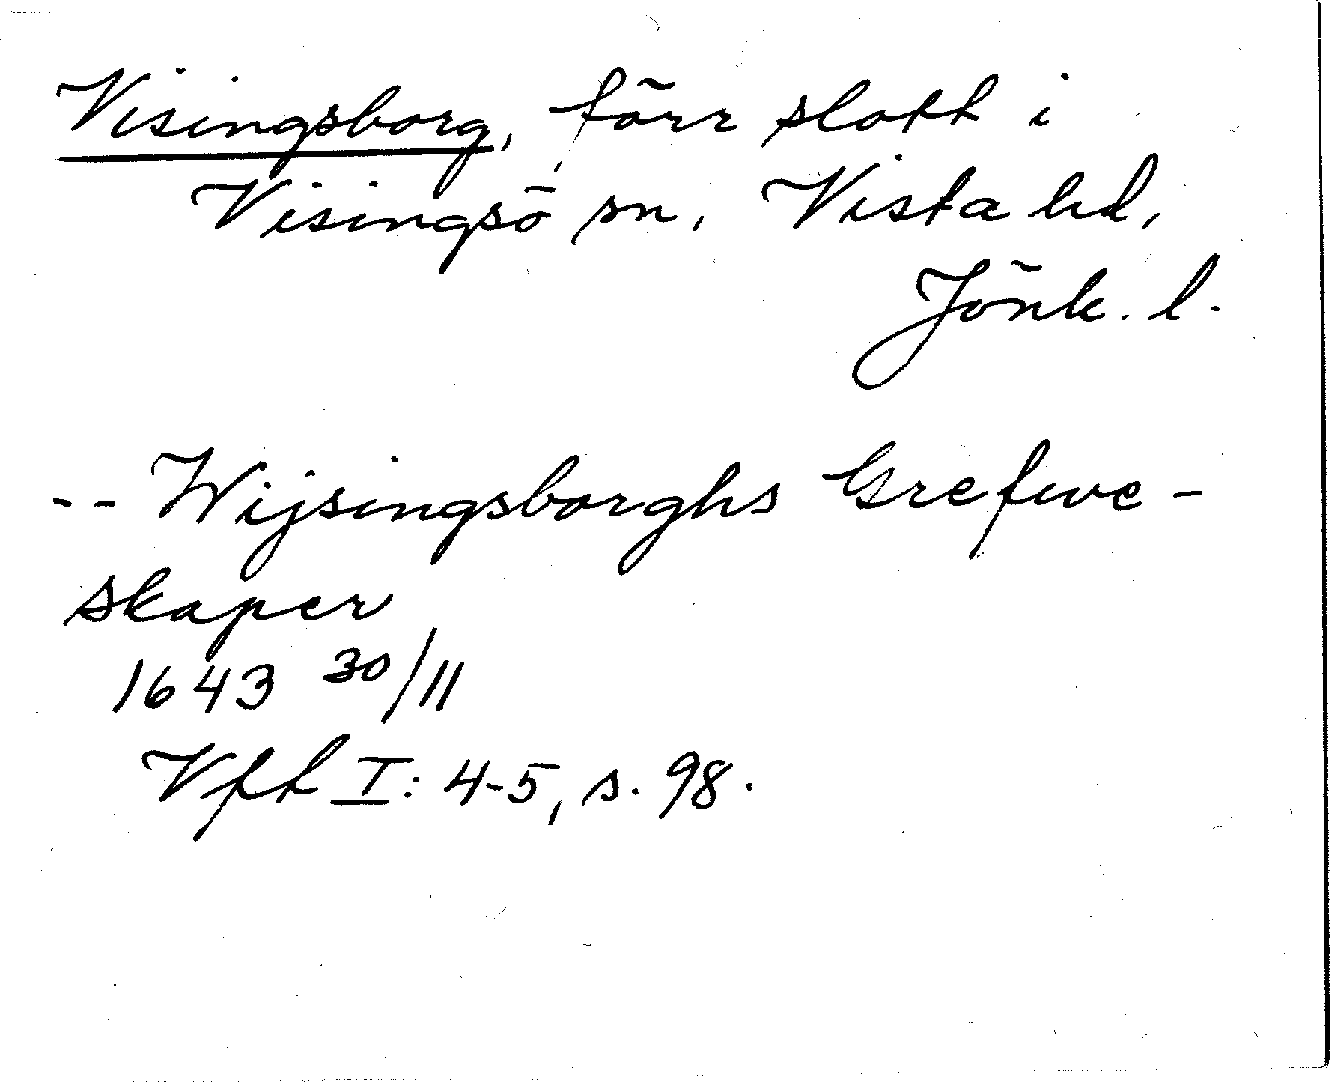 Visingsborg, förr slott i
Visingsö sn, Vista hd,
Jönk. l.
-- Wijsingsborghs Grefwe-
skaper
1643 30/11
Vfh I: 4-5, s. 98.